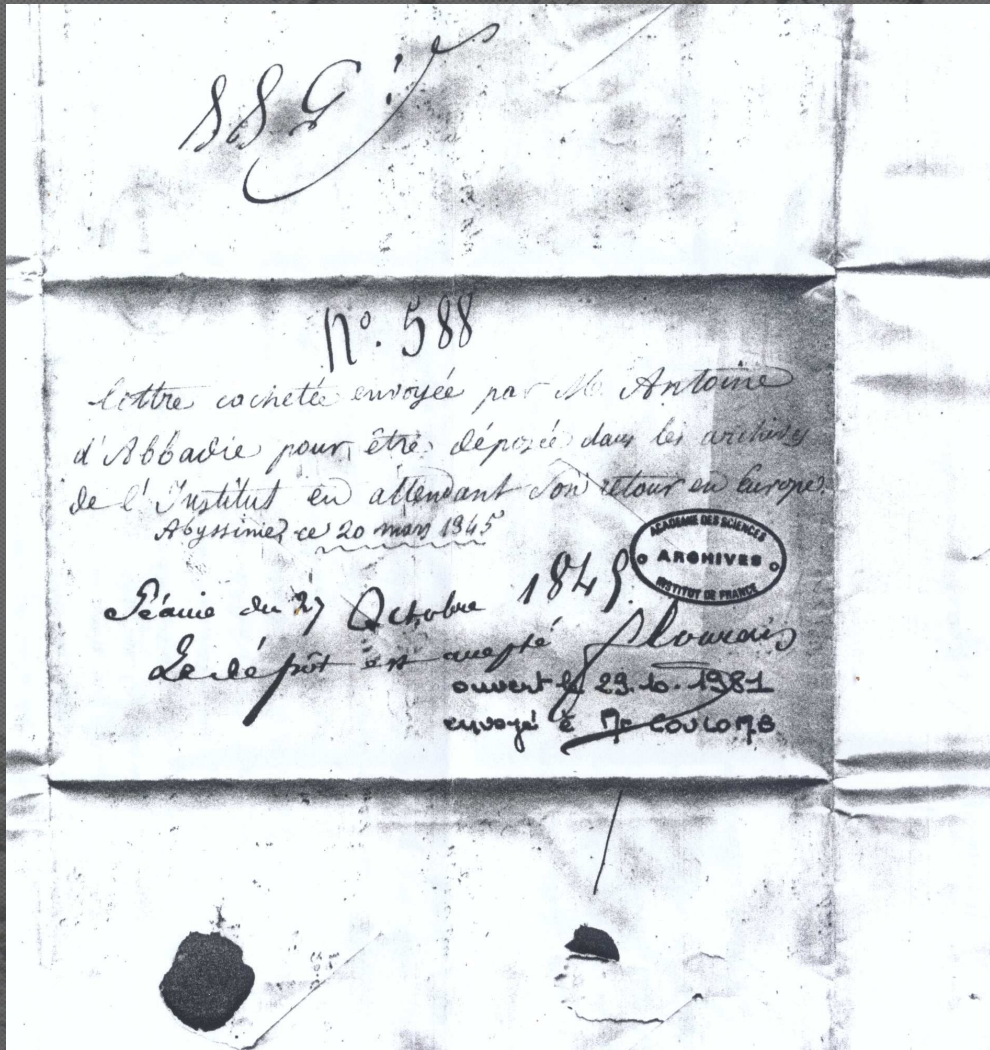 588
N°. 588
lettre cachetée envoyée par M. Antoine
d'Abbadie pour être déposée dans les archives
de l'Institut en attendant son retour en Europe.
Abyssinie, ce 20 mars 1845
ACADEMIE DES SCIENCES
ARCHIVES
INSTITUT DE FRANCE
Séance du 27 Octobre 1845.
Le dépôt est accepté
Flourens
ouvert le 29.10.1981
envoyé à Mr COULOMB